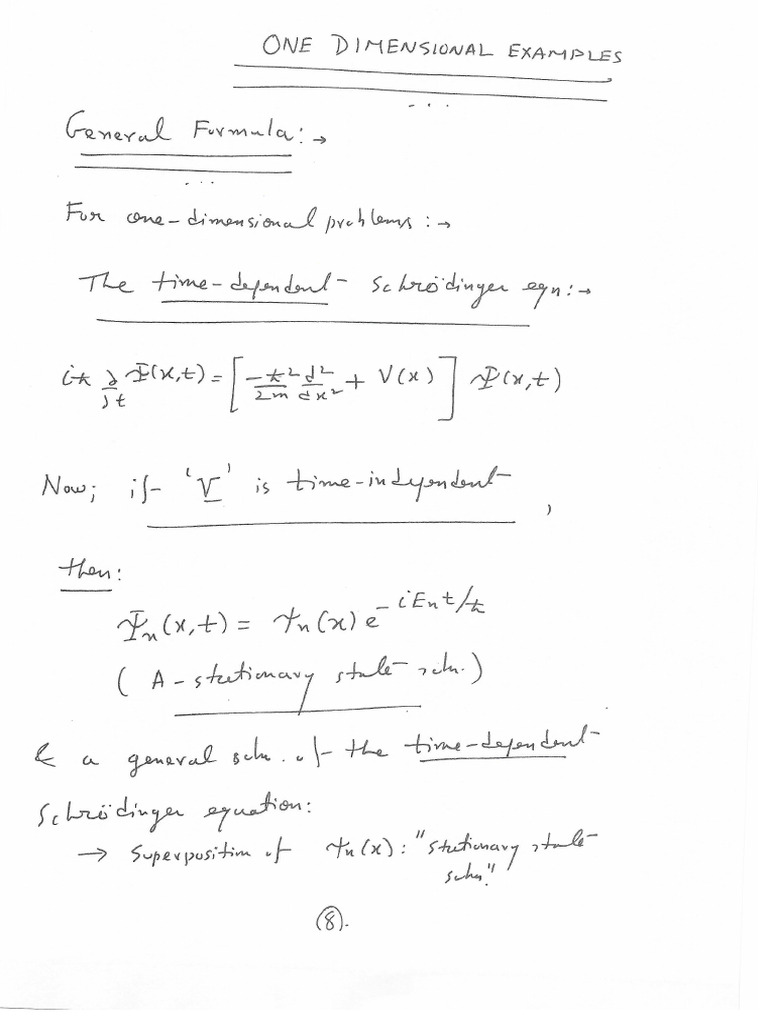 ONE DIMENSIONAL EXAMPLES
...
General Formula:→
...
For one-dimensional problems:→
The time-dependent Schrödinger eqn:→
iħ ∂/∂t Ψ(x,t) = [-ħ²/2m d²/dx² + V(x)] Ψ(x,t)
Now; if 'V' is time-independent,
then:
Ψn(x,t) = ψn(x) e^-iEnt/ħ
(A-stationary state soln.)
& a general soln. of the time-dependent
Schrödinger equation:
→ Superposition of ψn(x): "stationary state
solns."
(8).